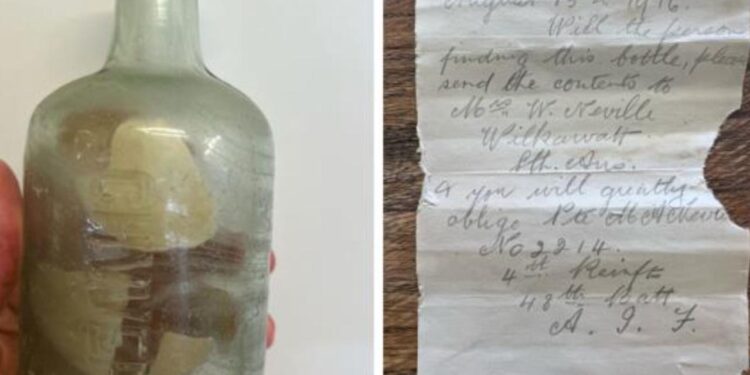 August 15th 1916.
Will the person
finding this bottle, please
send the contents to
Mrs W. Neville
Wilkawatt.
Sth. Aus.
& you will greatly
oblige Pte M A Neville
No 2214.
4th Reinft
48th Batt
A. I. F.